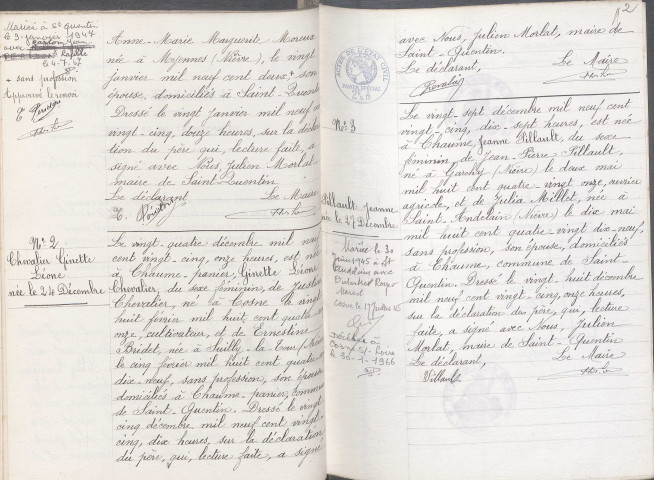 Mariée à St Quentin
le 3 janvier 1947
avec
+ sans profession
Approuvé le renvoi
Anne-Marie Marguerite Moreux
née à (Nièvre), le vingt
janvier mil neuf cent deux, + son
épouse, domiciliés à Saint-Quentin
Dressé le vingt janvier mil neuf cent
vingt-cinq, douze heures, sur la déclara
tion du père qui, lecture faite, a
signé avec Nous, Julien Morlat
maire de Saint-Quentin
Le déclarant Le Maire
N° 2
Chevalier Ginette
Léone
née le 24 Décembre
Le vingt-quatre décembre mil neuf
cent vingt-cinq, onze heures, est née
à Chaume-panier, Ginette Léone
Chevalier, du sexe féminin, de Justin
Chevalier, né à Cosne le vingt
huit février mil huit cent quatre
onze, cultivateur, et de Ernestine
Bridet, née à Suilly-la-Tour (Nièvre)
le cinq février mil huit cent quatre
dix-neuf, sans profession, son épouse
domiciliés à Chaume-panier, commune
de Saint-Quentin. Dressé le vingt
cinq décembre mil neuf cent vingt-
cinq, dix heures, sur la déclaration
du père, qui, lecture faite, a signé
2
avec Nous, Julien Morlat, maire de
Saint-Quentin.
Le déclarant, Le Maire
Chevalier
N° 3
Pillault Jeanne
née le 27 Décembre
Mariée le 30
juin 1945 à St
avec
Cosne le 17 juillet 45
Décédée à
Cosne s/ Loire
le 30-1-1966
Le vingt sept décembre mil neuf cent
vingt-cinq, dix-sept heures, est née
à Chaume, Jeanne Pillault, du sexe
féminin, de Jean-Pierre Pillault,
né à Garchy (Nièvre) le deux mai
mil huit cent quatre-vingt onze, ouvrier
agricole, et de Julia Millet, née à
Saint-Andelain (Nièvre) le dix mai
mil huit cent quatre vingt dix-neuf,
sans profession, son épouse, domiciliés
à Chaume, commune de Saint-
Quentin. Dressé le vingt-huit décembre
mil neuf cent vingt-cinq, onze heures,
sur la déclaration du père, qui, lecture
faite, a signé avec Nous, Julien
Morlat, maire de Saint-Quentin
Le déclarant, Le Maire
Pillault